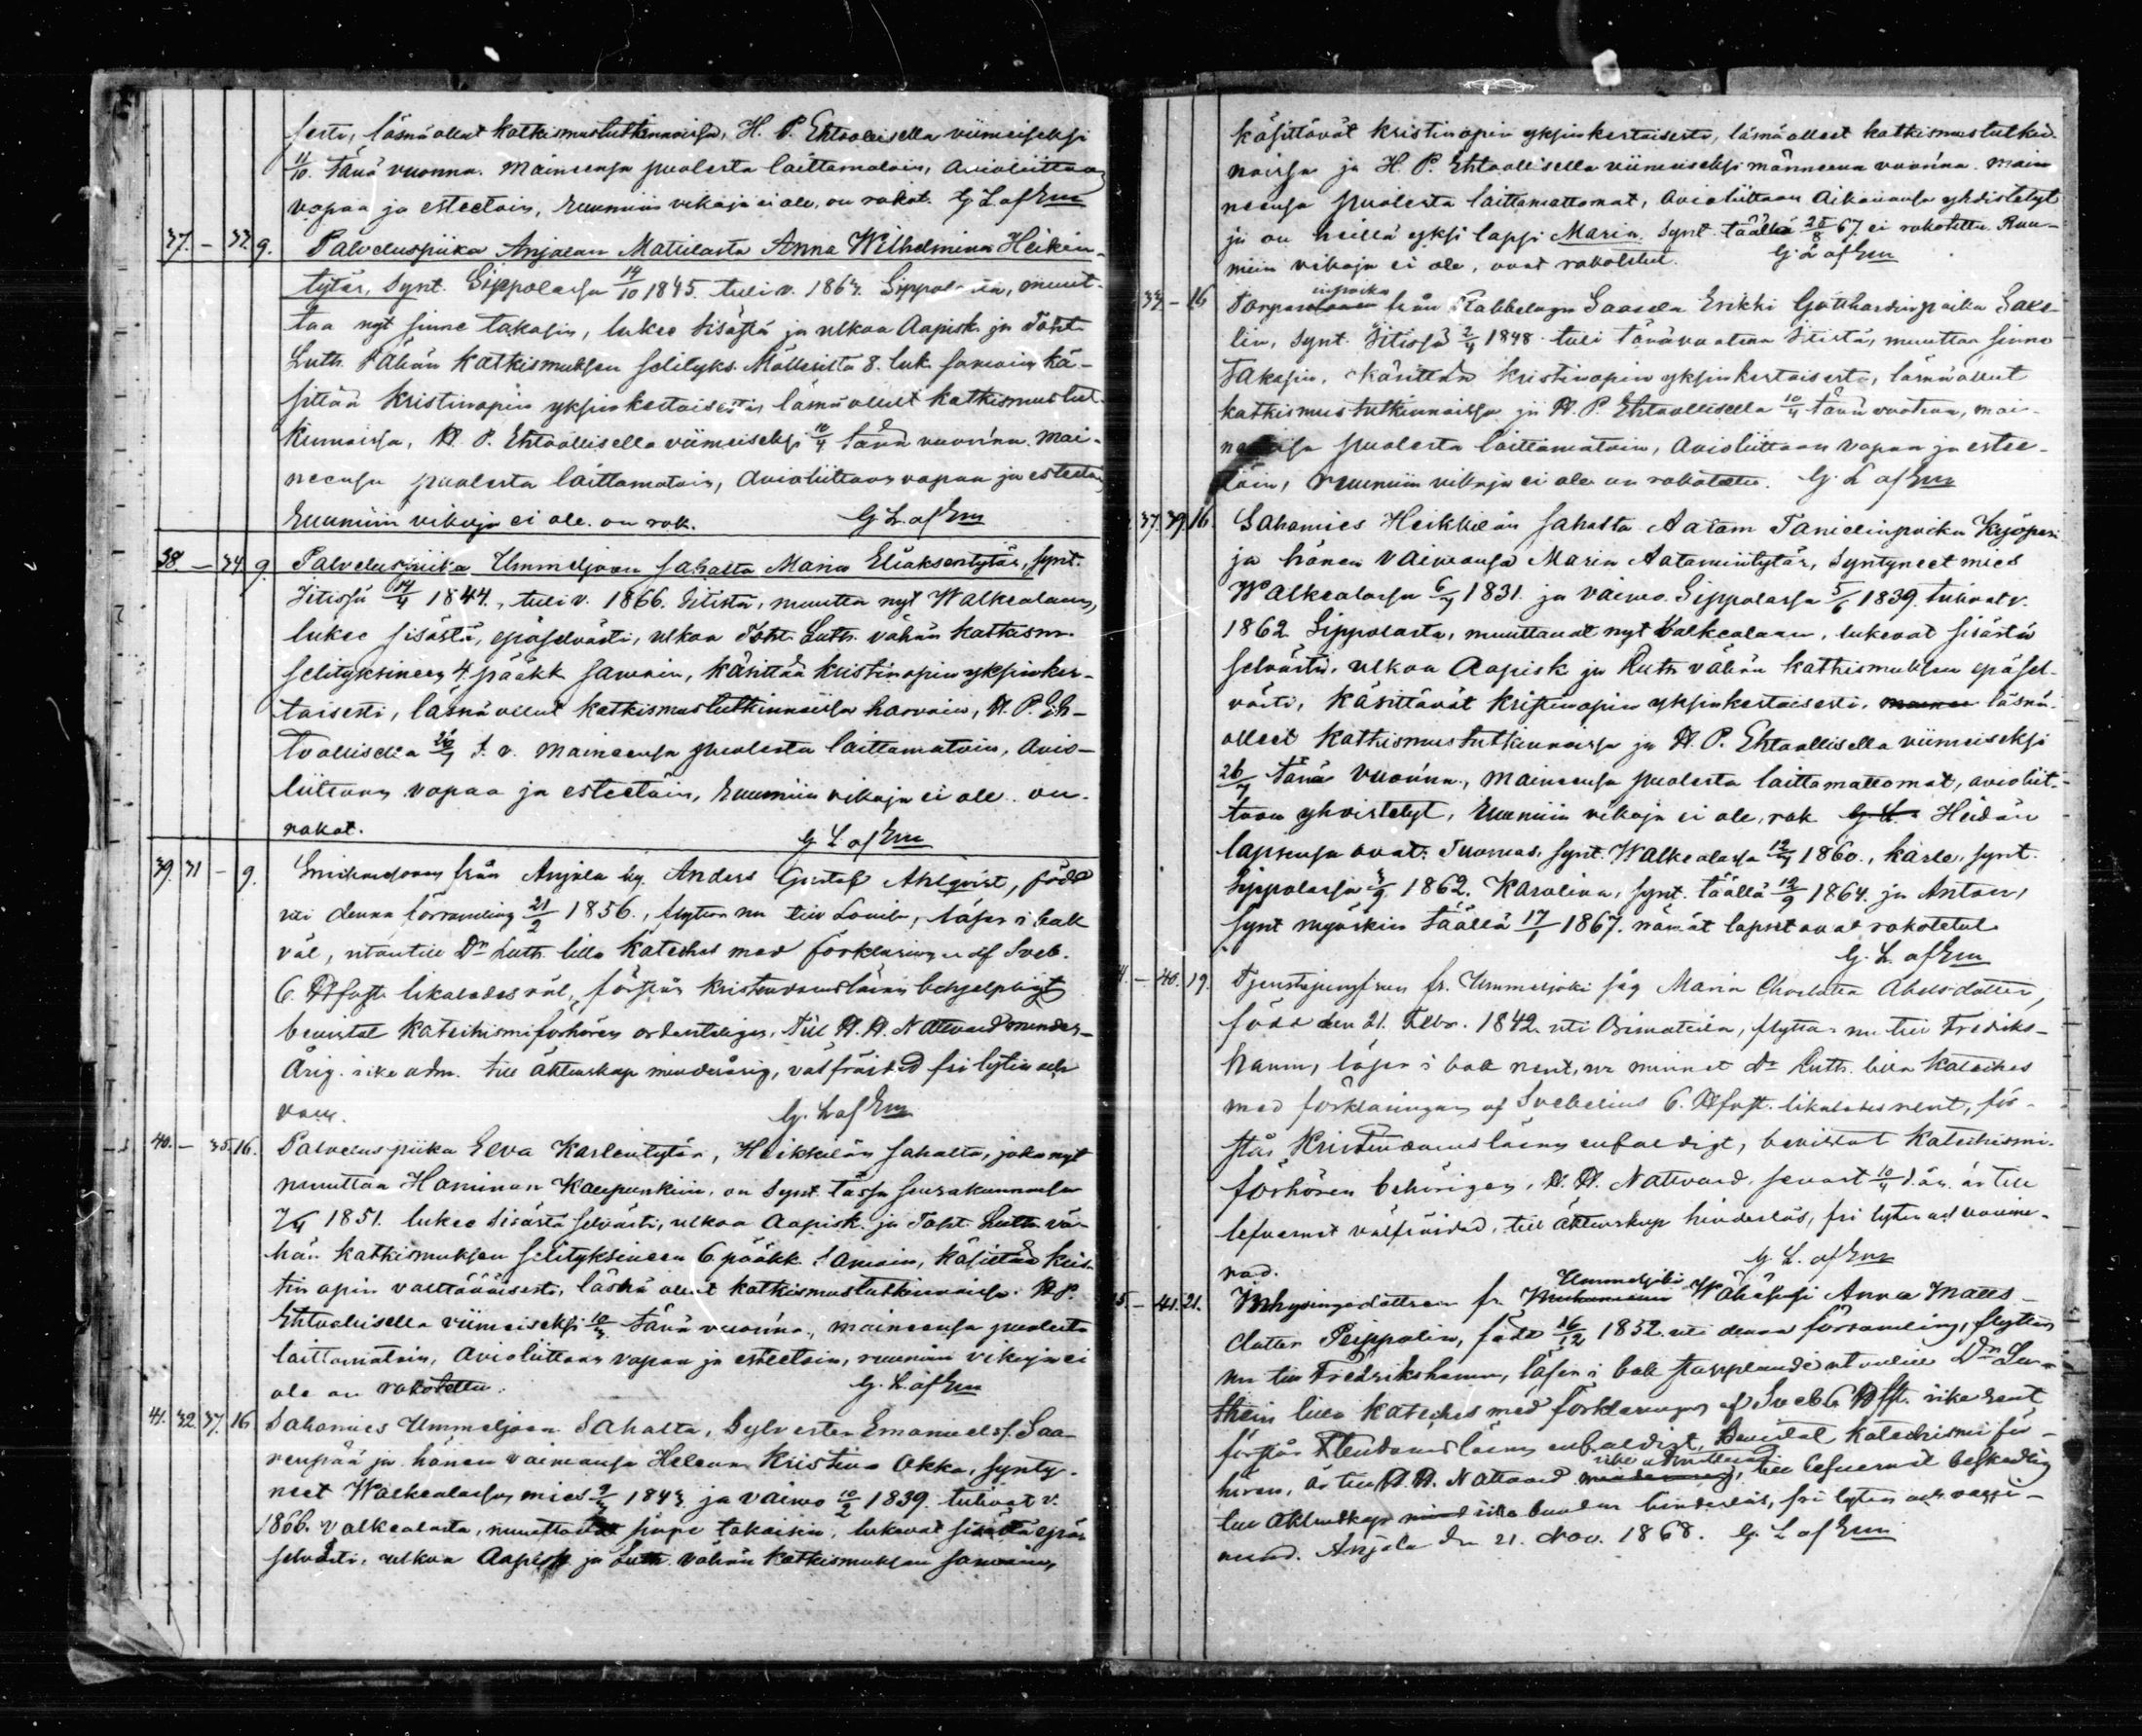 sesti, läsnä ollut katkismustutkinnoissa, H. P. Ehtoolisella viimeiseksi
11/10. tänä vuonna. Maineensa puolesta laittamatoin, Avioliittoon
vapaa ja esteetoin, Ruumiin vikoja ei ole, on rokot. G L af Enn
37. – 33. 9. Palveluspiika Anjalan Mattilasta Anna Wilhelmina Heikin-
tytär, Synt. Sippolassa 14/10 1845. tuli v. 1867. Sippolasta, muut-
taa nyt sinne takasin, lukee sisästä ja ulkoa Aapisk. ja Toht.
Luth. Vähän Katkismuksen selityks. 8. luk. samoin kä-
sittää Kristinopin yksinkertaisesti, läsnä ollut katkismustut-
kinnoissa, H. P. Ehtoollisella viimeiseksi 10/4 tänä vuonna. Mai-
neensa puolesta laittamatoin, Avioliittoon vapaa ja esteetoin
Ruumiin vikoja ei ole. on rok. G L. af Enn
38. – 34. 9. Palveluspiika Ummeljoen sahalta Maria Eliaksentytär, synt.
Iitissä 14/4 1844., tuli v. 1866. Iitistä, muutta nyt Walkealaan,
lukee sisästä, epäselvästi, ulkoa Toht. Luth. vähän katkism.
selityksineen 4. pääkk samoin, käsittää kristinopin yksinker-
taisesti, läsnä ollut katkismustutkinnoissa harvoin, H. P. Eh-
toollisella 26/7 t. v. maineensa puolesta laittamatoin, Avio-
liittoon vapaa ja esteetöin, Ruumiin vikoja ei ole. on
rokot. G L. af Enn
39. 31 – 9. från Anjala by. Anders Gustaf Ahlqvist, född
uti denna församling 21/2 1856., flyttar nu till Lovisa, läser i bok
väl, utantill Dr Luth. lilla Kateches med förklaringen af Sveb.
6. Hfst. likaledes väl, förstår kristendomsläran behjelpligt
bevistat Katechismiförhören ordentligen, till H. H. Nattvard minder-
årig. icke adm. till äktenskap minderårig, välfräjdad fri lytin och
vacc. G. L af Enn
40. – 35. 16. Palveluspiika Eeva Karlentytär, Heikkilän sahalta, joka nyt
muuttaa Haminan Kaupunkiin, on synt. tässä seurakunnassa
7/4 1851. lukee sisästä selvästi, ulkoa Aapisk. ja Toht. Luth. vä-
hän katkismuksen selityksineen 6 pääkk. samoin, käsittää kris-
tin opin välttävaisesti, läsnä ollut katkismustutkinnoissa. H P.
Ehtoolisella viimeiseksi 10/4 tänä vuonna, maineensa puolesta
laittamatoin, Avioliittoon vapaa ja esteetoin, ruumiin vikoja ei
ole on rokotettu. G. L. af Enn
41. 32. 37. 16 Sahamies Ummeljoen Sahalta, Sylvester Emanuels. Saa-
renpää ja hänen vaimonsa Helena Kristina Okko, synty-
neet Walkealassa, mies 9/4 1843 ja vaimo 10/2 1839. tulivat v.
1866. Valkealasta, muuttavat sinne takaisin, lukevat sisästä epä-
selvästi, ulkoa Aapisk ja Luth. vähän katkismuksen samoin,
käsittävät kristinopin yksinkertaisesti, läsnä olleet katkismustutkin-
noissa ja H. P. Ehtoollisella viimeiseksi männeenä vuonna. Mai-
neensa puolesta laittamattomat, Avioliittoon Aikananssa yhdistetyt
ja on heillä yksi lapsi Maria, Synt. täällä 28/8 67. ei rokotettu. Ruu-
miin vikoja ei ole, ovat rokotetut. G. L af Enn
33 – 16 från Rabbelugn Erikki Gotthardinpoika
synt. Iitissä 2/4 1848. tuli tänä vuotena Iitistä, muuttaa sinne
takasin, käsittää kristinopin yksinkertaisesti, läsnä ollut
katkismustutkinnoissa ja H. P. Ehtoollisella 10/4 tänä vuotena, mai-
neensa puolesta laittamatoin, Avioliittoon vapaa ja estee-
töin, ruumiin vikoja ei ole on rokotettu. G L af Enn
37. 39. 16. Sahamies Heikkilän sahalta Aatam Tanielinpoika
ja hänen Vaimonsa Maria Aatamintytär, syntyneet mies
Walkealassa 6/7 1831. ja vaimo. Sippolassa 5/6 1839. tulivat v.
1862. Sippolasta, muuttavat nyt Valkealaan, lukevat sisästä
selvästi, ulkoa Aapisk ja Luth. vähän katkismuksen epäsel-
västi, käsittävät kristinopin yksinkertaisesti, läsnä-
olleet katkismustutkinnoissa ja H. P. Ehtoollisella viimeiseksi
26/7 tänä vuonna, maineensa puolesta laittamattomat, avioliit-
toon yhdistetyt, Ruumiin vikoja ei ole, rok Heidän
lapsensa ovat: Tuomas, synt. Walkealassa 12/4 1860., Karle, synt.
Sippolassa 3/9 1862. Karolina, synt. täällä 12/9 1864. ja Anton,
synt myöskin täällä 17/1 1867. nämät lapset ovat rokotetut.
G. L. af Enn
– 40. 19. Tjenstejungfrun fr. Ummeljoki såg Maria Charlotta Abelsdotter,
född den 21. Febr. 1842. uti Orimattila, flyttar nu till Fredriks-
hamn, läser i bok rent, ur minnet Dr Luth. lilla Kateches
med förklaringen af Svebelius 6. Hfst. likaledes rent, för-
står Kristendomsläran enfaldigt, bevistat Katechismi-
förhören behörigen, H. H. Nattvard, senast 10/4 d. år. är till
lefvernet välfräjdad, till äktenskap hinderlös, fri lyten och vaccine-
rad. G. L. af Enn
– 41. 21. Inhysingedottren fr. Ummeljoki Anna Matts-
dotter Peippolin, född 16/12 1852. uti denna församling, flyttar
nu till Fredrikshamn, läser i bok stapplande utantill Dr Lu-
theri lilla Kateches med förklaringen af Sveb 6 Hfst. icke rent
förstår Xtendomsläran enfaldigt, Bevistat Katechismi för-
hören, är till H. H. Nattvard icke admitterad, till lefvernet beskedlig
till äktenskap icke bunden hinderlös, fri lyten och vacci-
nerad. Anjala den 21. Nov. 1868. G. L af Enn